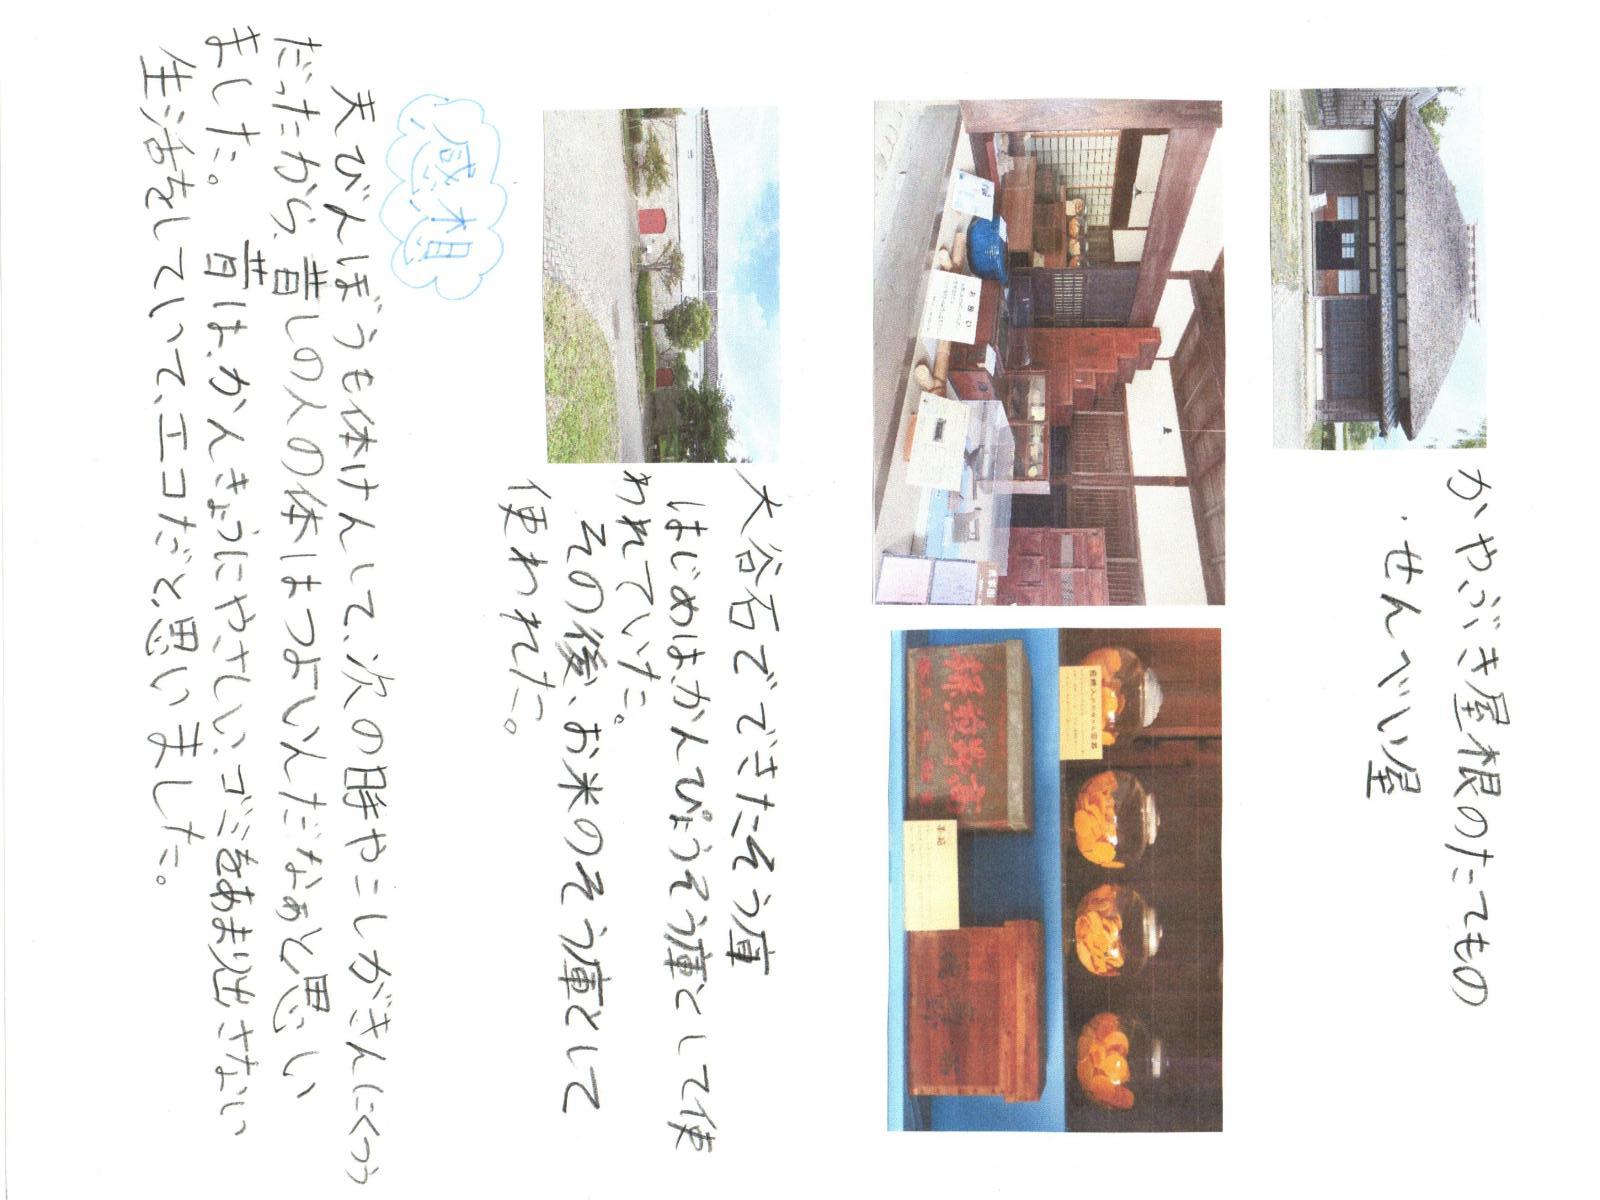 かやぶき屋根のたてもの
・せんべい屋
お願い
大谷石でできたそう庫
はじめはかんぴょうそう庫として使
われていた。
その後、お米のそう庫として
使われれた。
感想
天びんぼうも体けんして、次の日肩やこしがきんにくつう
だったから、昔しの人の体はつよいんだなぁと思い
ました。 昔は、かんきょうにやさしい、ゴミをあまり出さない
生活をしていて、エコだと、思いました。